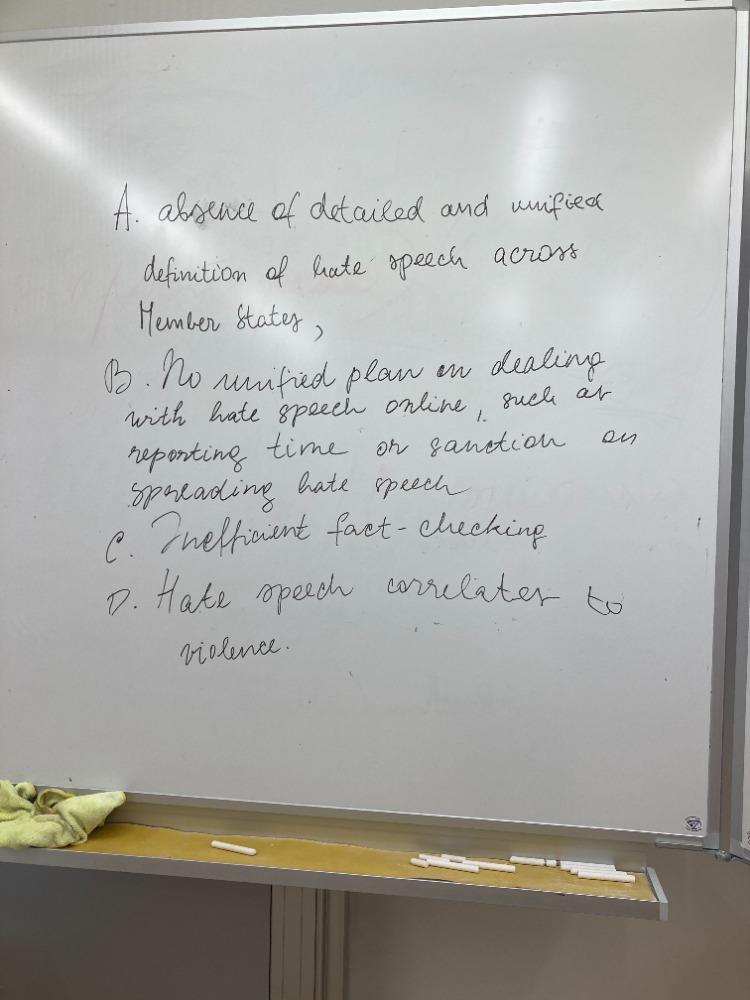 A. absence of detailed and unified
definition of hate speech across
Member States,
B. No unified plan on dealing
with hate speech online, such as
reporting time or sanction on
spreading hate speech
C. Inefficient fact-checking
D. Hate speech correlates to
violence.